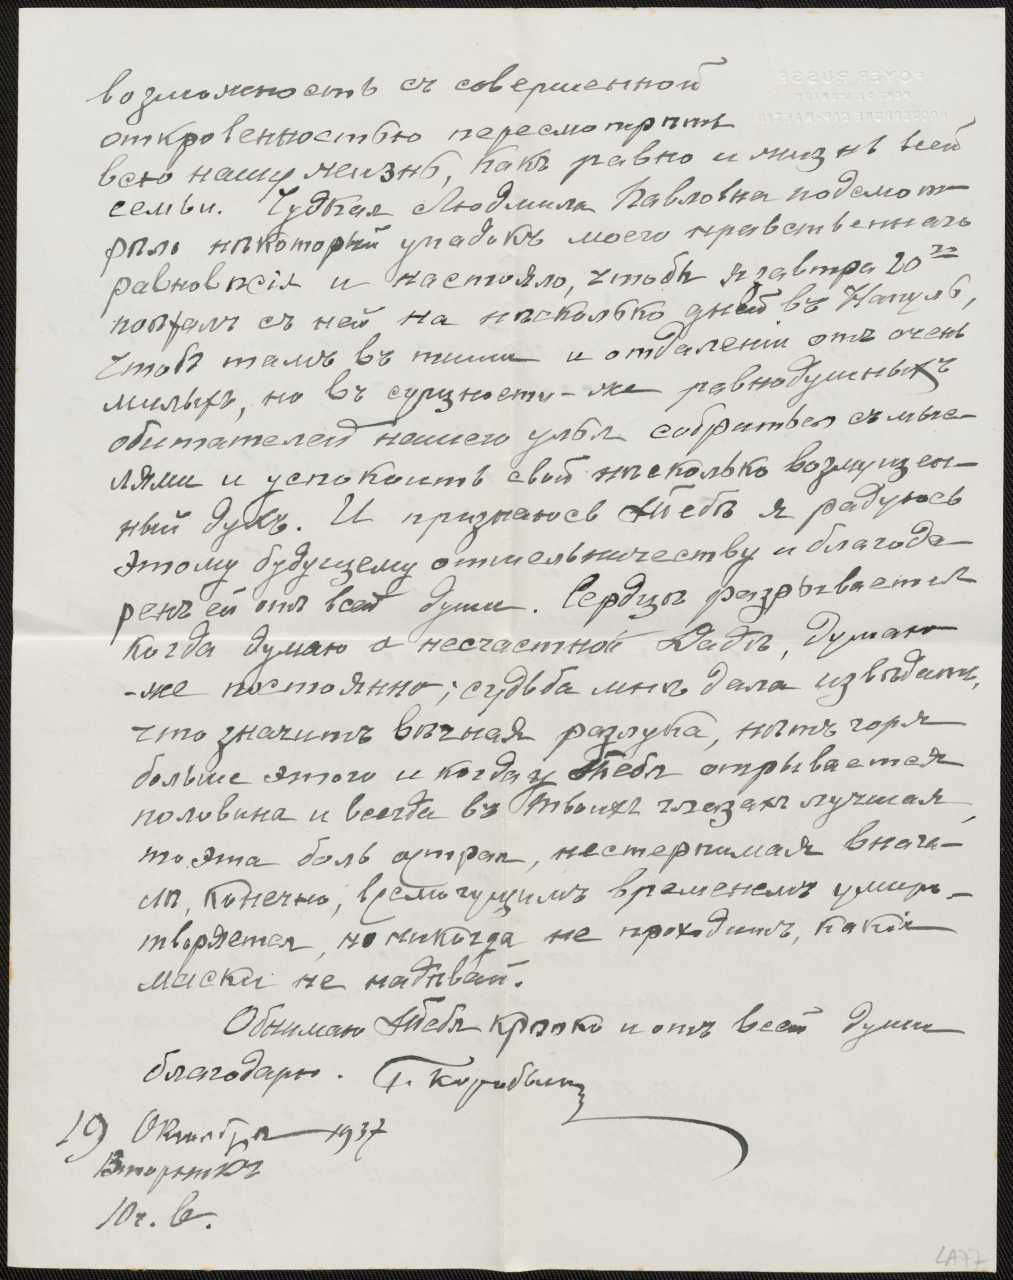 возможность съ совершенной
откровенностью пересмотрѣть
всю нашу жизнь, какъ равно и жизнь всей
семьи. Чудная Людмила Павловна подсмот-
рѣла нѣкоторый упадокъ моего нравственнаго
равновѣсія и настояла, чтобы я завтра 20го
поѣхалъ съ ней на нѣсколько дней въ Напуль,
чтобы тамъ въ тиши и отдаленіи отъ очень
милыхъ, но въ сущности-же равнодушныхъ
обитателей нашего улья собраться съ мыс-
лями и успокоить свой нѣсколько возмущен-
ный духъ. И признаюсь Тебѣ я радуюсь
этому будущему отшельничеству и благода-
ренъ ей отъ всей души. Сердце разрывается
когда думаю о несчастной Дадѣ, думаю
-же постоянно; судьба мнѣ дала извѣдать,
что значитъ вѣчная разлука, нѣтъ горя
больше этого и когда у Тебя отрывается
половина и всегда въ Твоихъ глазахъ лучшая,
то эта боль острая, нестерпимая внача-
лѣ, конечно, всемогущимъ временемъ умиро-
творяется, но никогда не проходитъ, какія
маски не надѣвай.
Обнимаю Тебя крѣпко и отъ всей души
благодарю. Г.
19 Октября 1937
Вторникъ
10ч. в.
FOYER RUSSE
LA77